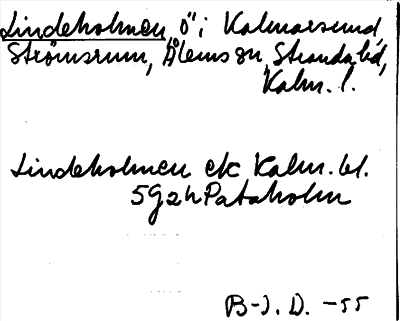 Lindeholmen, ö i Kalmarsund
Strömsrum, Ålems sn, Stranda hd,
Kalm. l.
Lindeholmen ek Kalm. bl.
5G2h Pataholm
B-J. D. -55